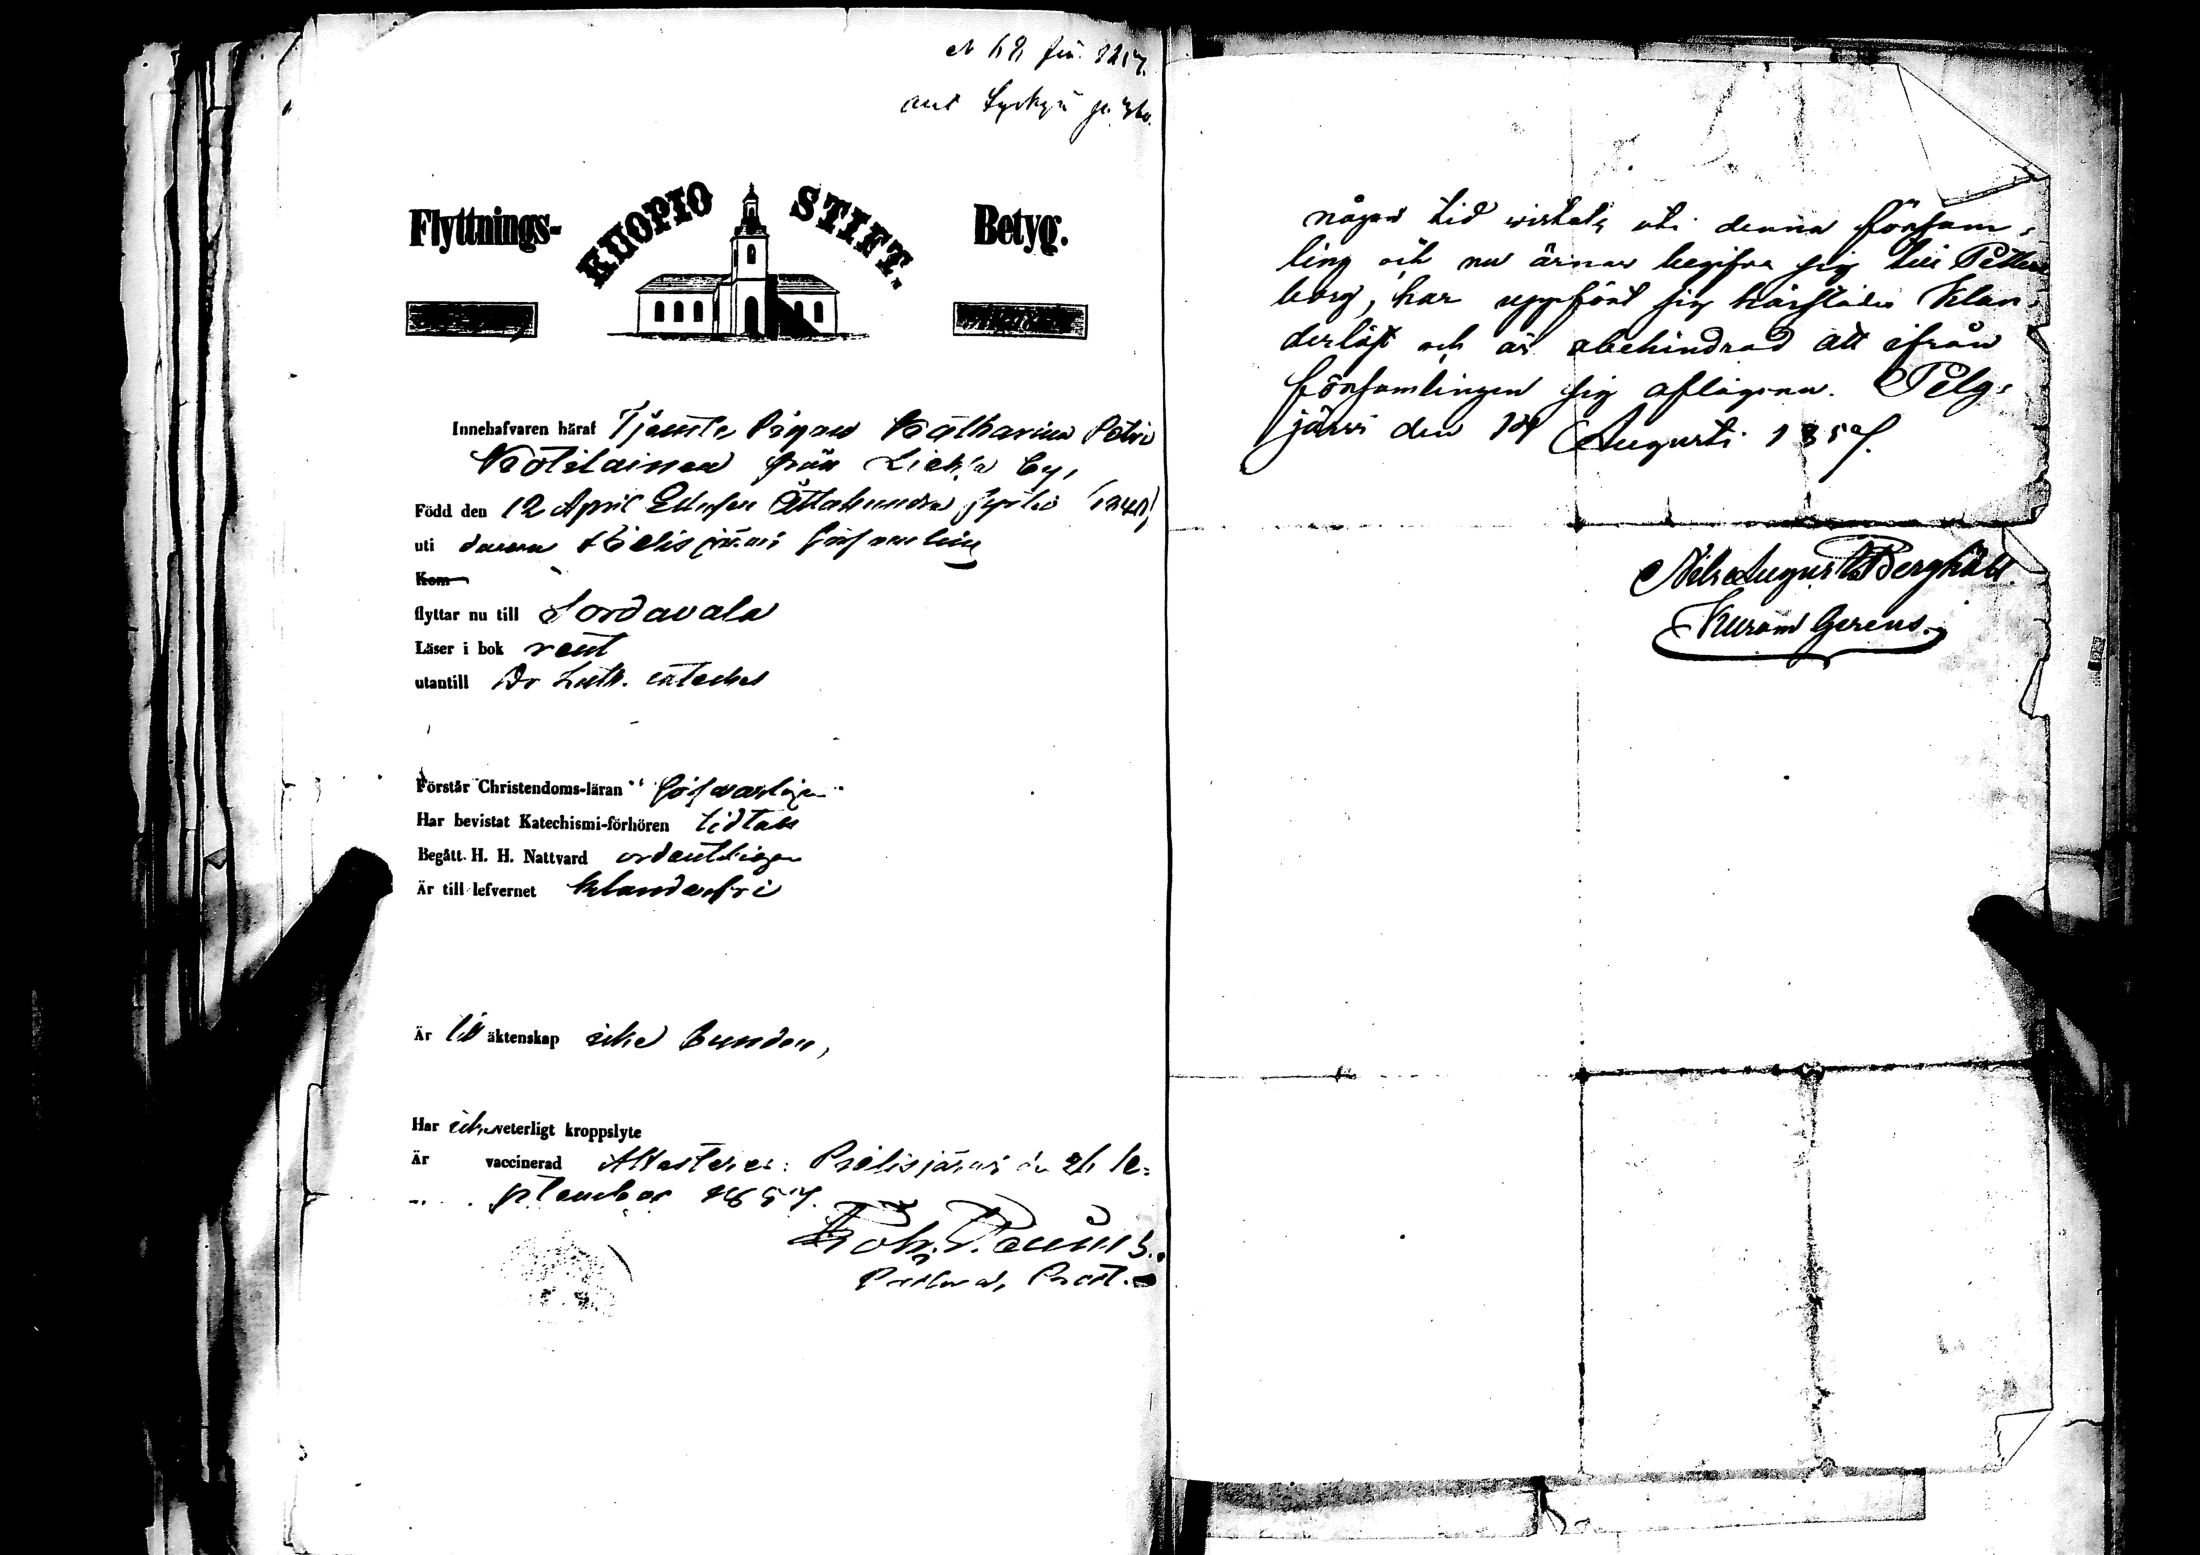 Flyttnings- KUOPIO STIFT. Betyg.
Innehafvaren häraf Tjenste Pigan Katharina Petri
Kotilainen från Lieksa by,
Född den 12 April Ettusen Åttahundra
uti denna Pielisjärvi församling
Kom
flyttar nu till Sordavala
Läser i bok rent
utantill Dr Luth. cateches
Förstår Christendoms-läran försvarligen
Har bevistat Katechismi-förhören
Begått H. H. Nattvard ordentligen
Är till lefvernet klanderfri
Är till äktenskap icke bunden,
Har icke veterligt kroppslyte
Är vaccinerad Attesterar: Pielisjärvi den 26 Se-
ptember 1857.
Prost.
någon tid vistats uti denna försam-
ling och nu ärnar begifva sig till Petters
borg, har uppfört sig härstädes klan-
derlöst och är obehindrad att ifrån
församlingen sig aflägsna. Pelg-
järvi den Augusti 1857.
Nils August Berghäll
Gerens.